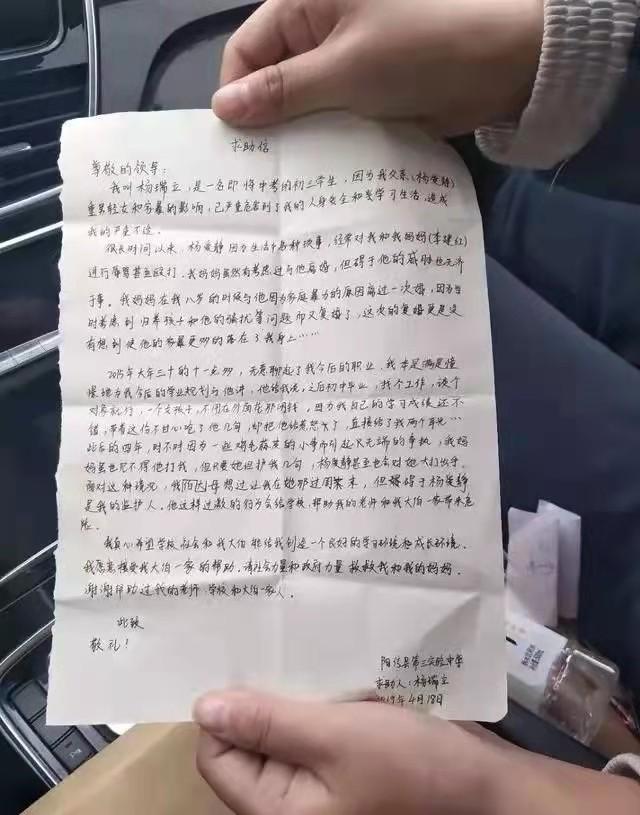 求助信
尊敬的领导:
我叫杨瑞立,是一名即将中考的初三学生,因为我父亲(杨爱静)
重男轻女和家暴的影响,已严重危害到了我的人身安全和我学习生活,造成
我的严重不适。
很长时间以来,杨爱静因为生活中各种琐事,经常对我和我妈妈(李建红)
进行辱骂甚至殴打。我妈妈虽然有考虑过与他离婚,但碍于他的威胁也无济
于事。我妈妈在我八岁的时候与他因为家庭暴力的原因离过一次婚,因为当
时考虑到归养孩子和他的骚扰等问题而又复婚了,这次的复婚更是没
有想到使他的家暴更多的落在了我身上……
2015年大年三十的十一点多,无意聊起了我今后的职业,我本是满是憧
憬地为我今后的学业规划与他讲,他给我说:之后初中毕业,找个工作,谈个
对象就行,一个女孩子,不用在外面花那闲钱。因为我自己的学习成绩还不
错,带着这份不甘心吃了他几句,却把他给惹怒了,直接给了我两个耳光…
此后的四年,时不时因为一些鸡毛蒜皮的小事而引起民无端的争执,我妈
妈虽也见不得他打我,但只要她袒护我几句,杨爱静甚至也会对她大打出手。
面对这种情况,我伯母想过让我在她那过周末,但碍于杨爱静
是我的监护人。他这样过激的行为会给学校、帮助我的老师和我大伯一家带来危
险。
我真心希望学校、社会和我大伯能给我创造一个良好的学习环境和成长环境。
我愿意接受我大伯一家的帮助。请社会力量和政府力量救救我和我的妈妈。
谢谢帮助过我的老师、学校和大伯一家人。
此致
敬礼!
阳信县第三实验中学
求助人:杨瑞立
2019年4月18日